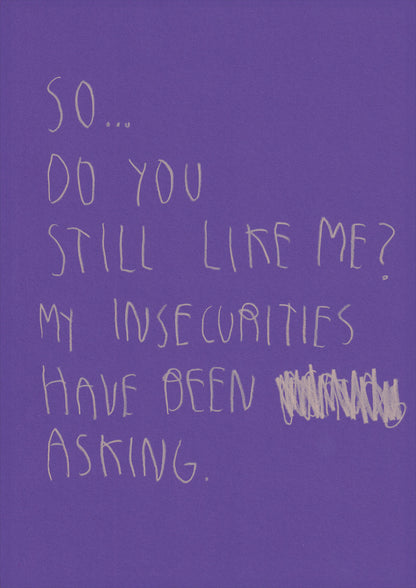 SO...
DO YOU
STILL LIKE ME?
MY INSECURITIES
HAVE BEEN
ASKING.